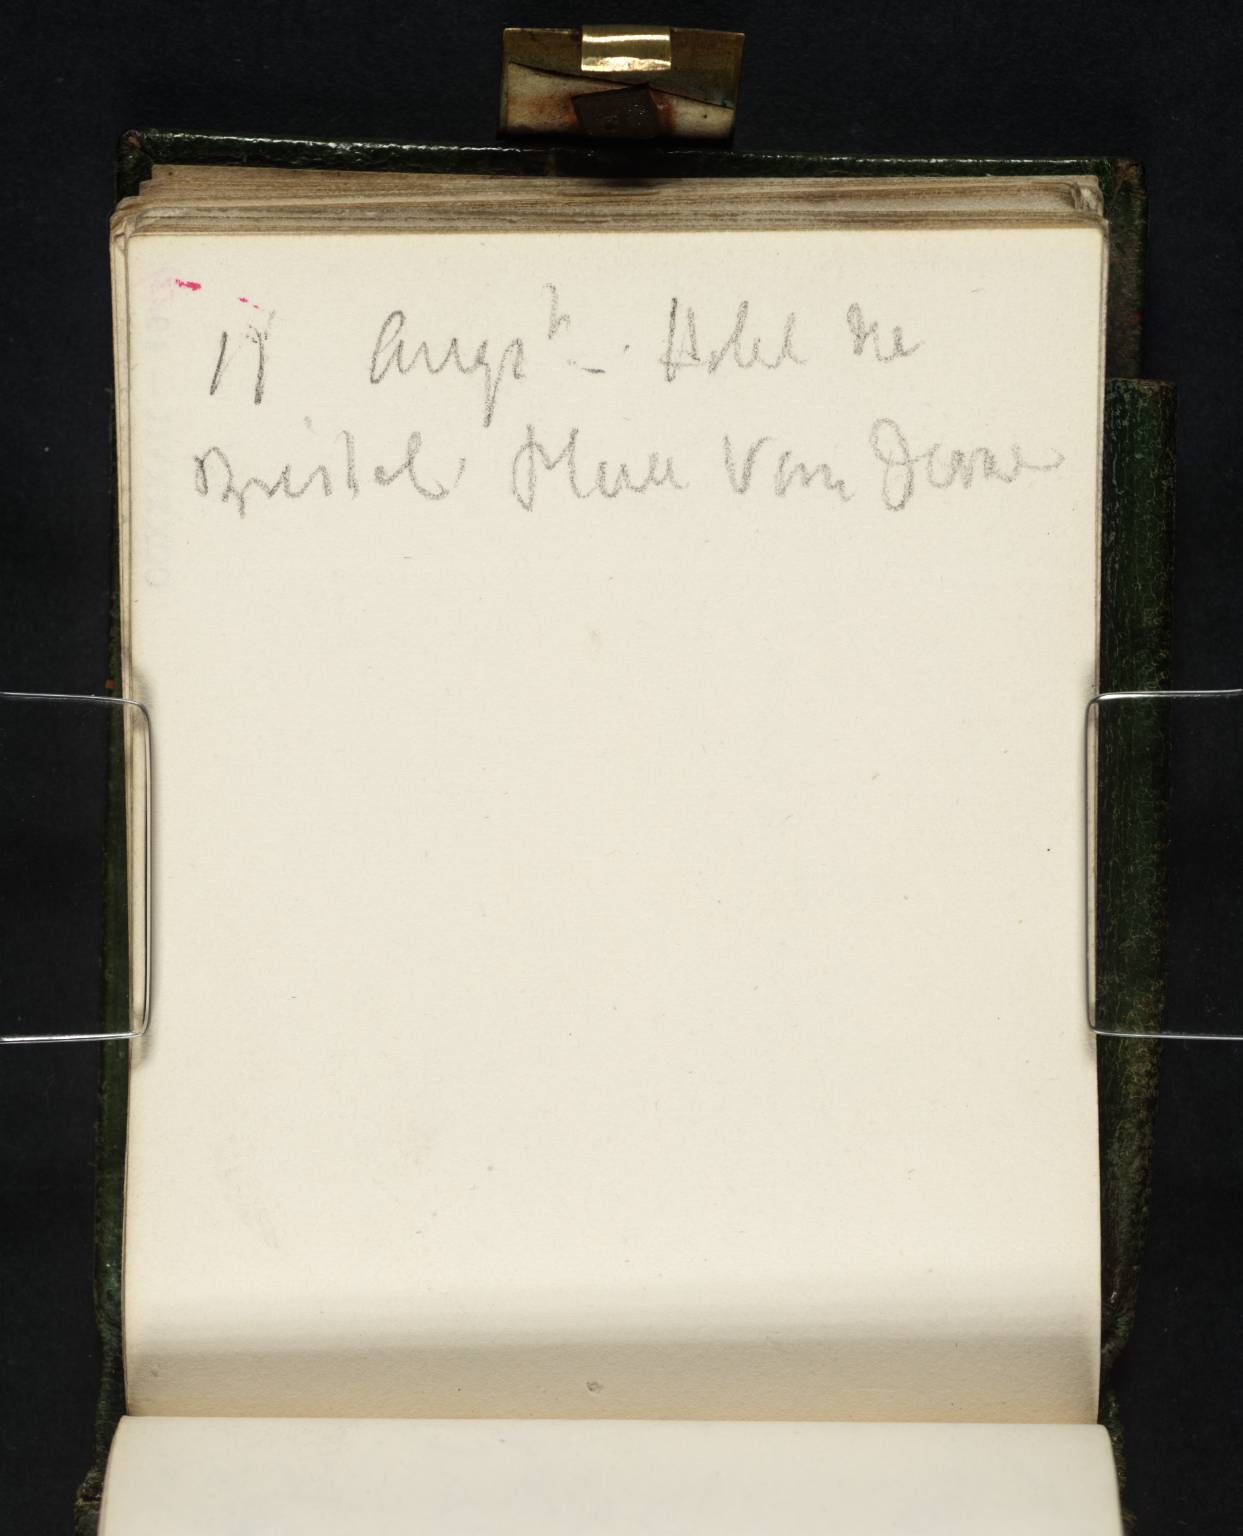 17 Augst - Hotel de
Bristol Place Vendome